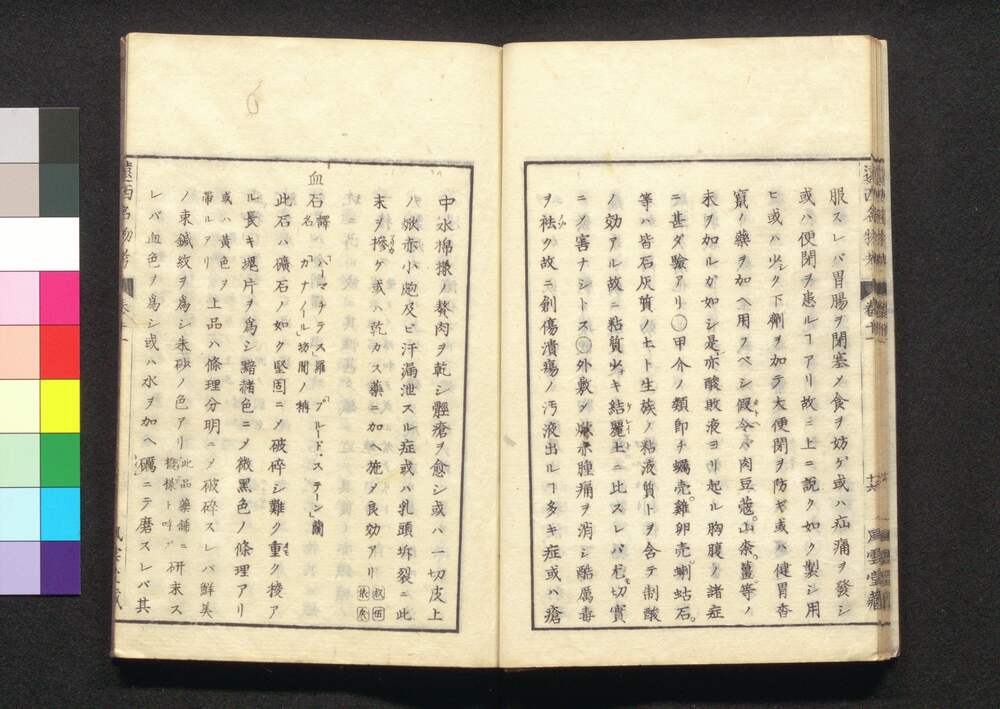 服スレバ胃腸ヲ閉塞〆食ヲ妨ゲ或ハ疝痛ヲ發シ
或ハ便閉ヲ患ルヿアリ故ニ上ニ説ク如ク製シ用
ヒ或ハ少シク下劑ヲ加テ大便閉ヲ防ギ或ハ健胃香
竄ノ藥ヲ加ヘ用フベシ假令バ肉豆蔲山柰薑等ノ
末ヲ加ルガ如シ是亦酸敗液ヨリ起ル胸腹ノ諸症
ニ甚ダ驗アリ〇甲介ノ類即チ蠣売雞卵売蝲蛄石
等ハ皆石灰質ノモト生族ノ粘液質トヲ含テ制酸
ノ効アル故ニ粘質少キ結麗土ニ比スレバ尤切實
ニ〆害ナシトス〇外敷シ焮赤腫痛ヲ消シ酷厲毒
ヲ祛ク故ニ創傷潰瘍ノ汚液出ルヿ多キ症或ハ瘡
中水綿撒ノ贅肉ヲ乾シ髒瘡ヲ愈シ或ハ一切皮上
ノ焮赤小皰及ビ汗漏泄スル症或ハ乳頭坼裂ニ此
末ヲ摻ケ或ハ乾カス藥ニ加ヘ施〆良効アリ
血石 譯名 「ハーマチラス」羅 「ブルード・ステーン」蘭
「ガナイル」坊間ノ稱
此石ハ礦石ノ如ク堅固ニ〆破碎シ難ク重ク稜ア
ル長キ塊片ヲ爲シ黯赭色ニ〆微黑色ノ條理アリ
或ハ黄色ヲ帶ルアリ 上品ハ條理分明ニ〆破碎スレバ鮮美
ノ束鍼紋ヲ爲シ朱砂ノ色アリ 研末ス
レバ血色ヲ爲シ或ハ水ヲ加ヘ礪ニテ磨スレバ其